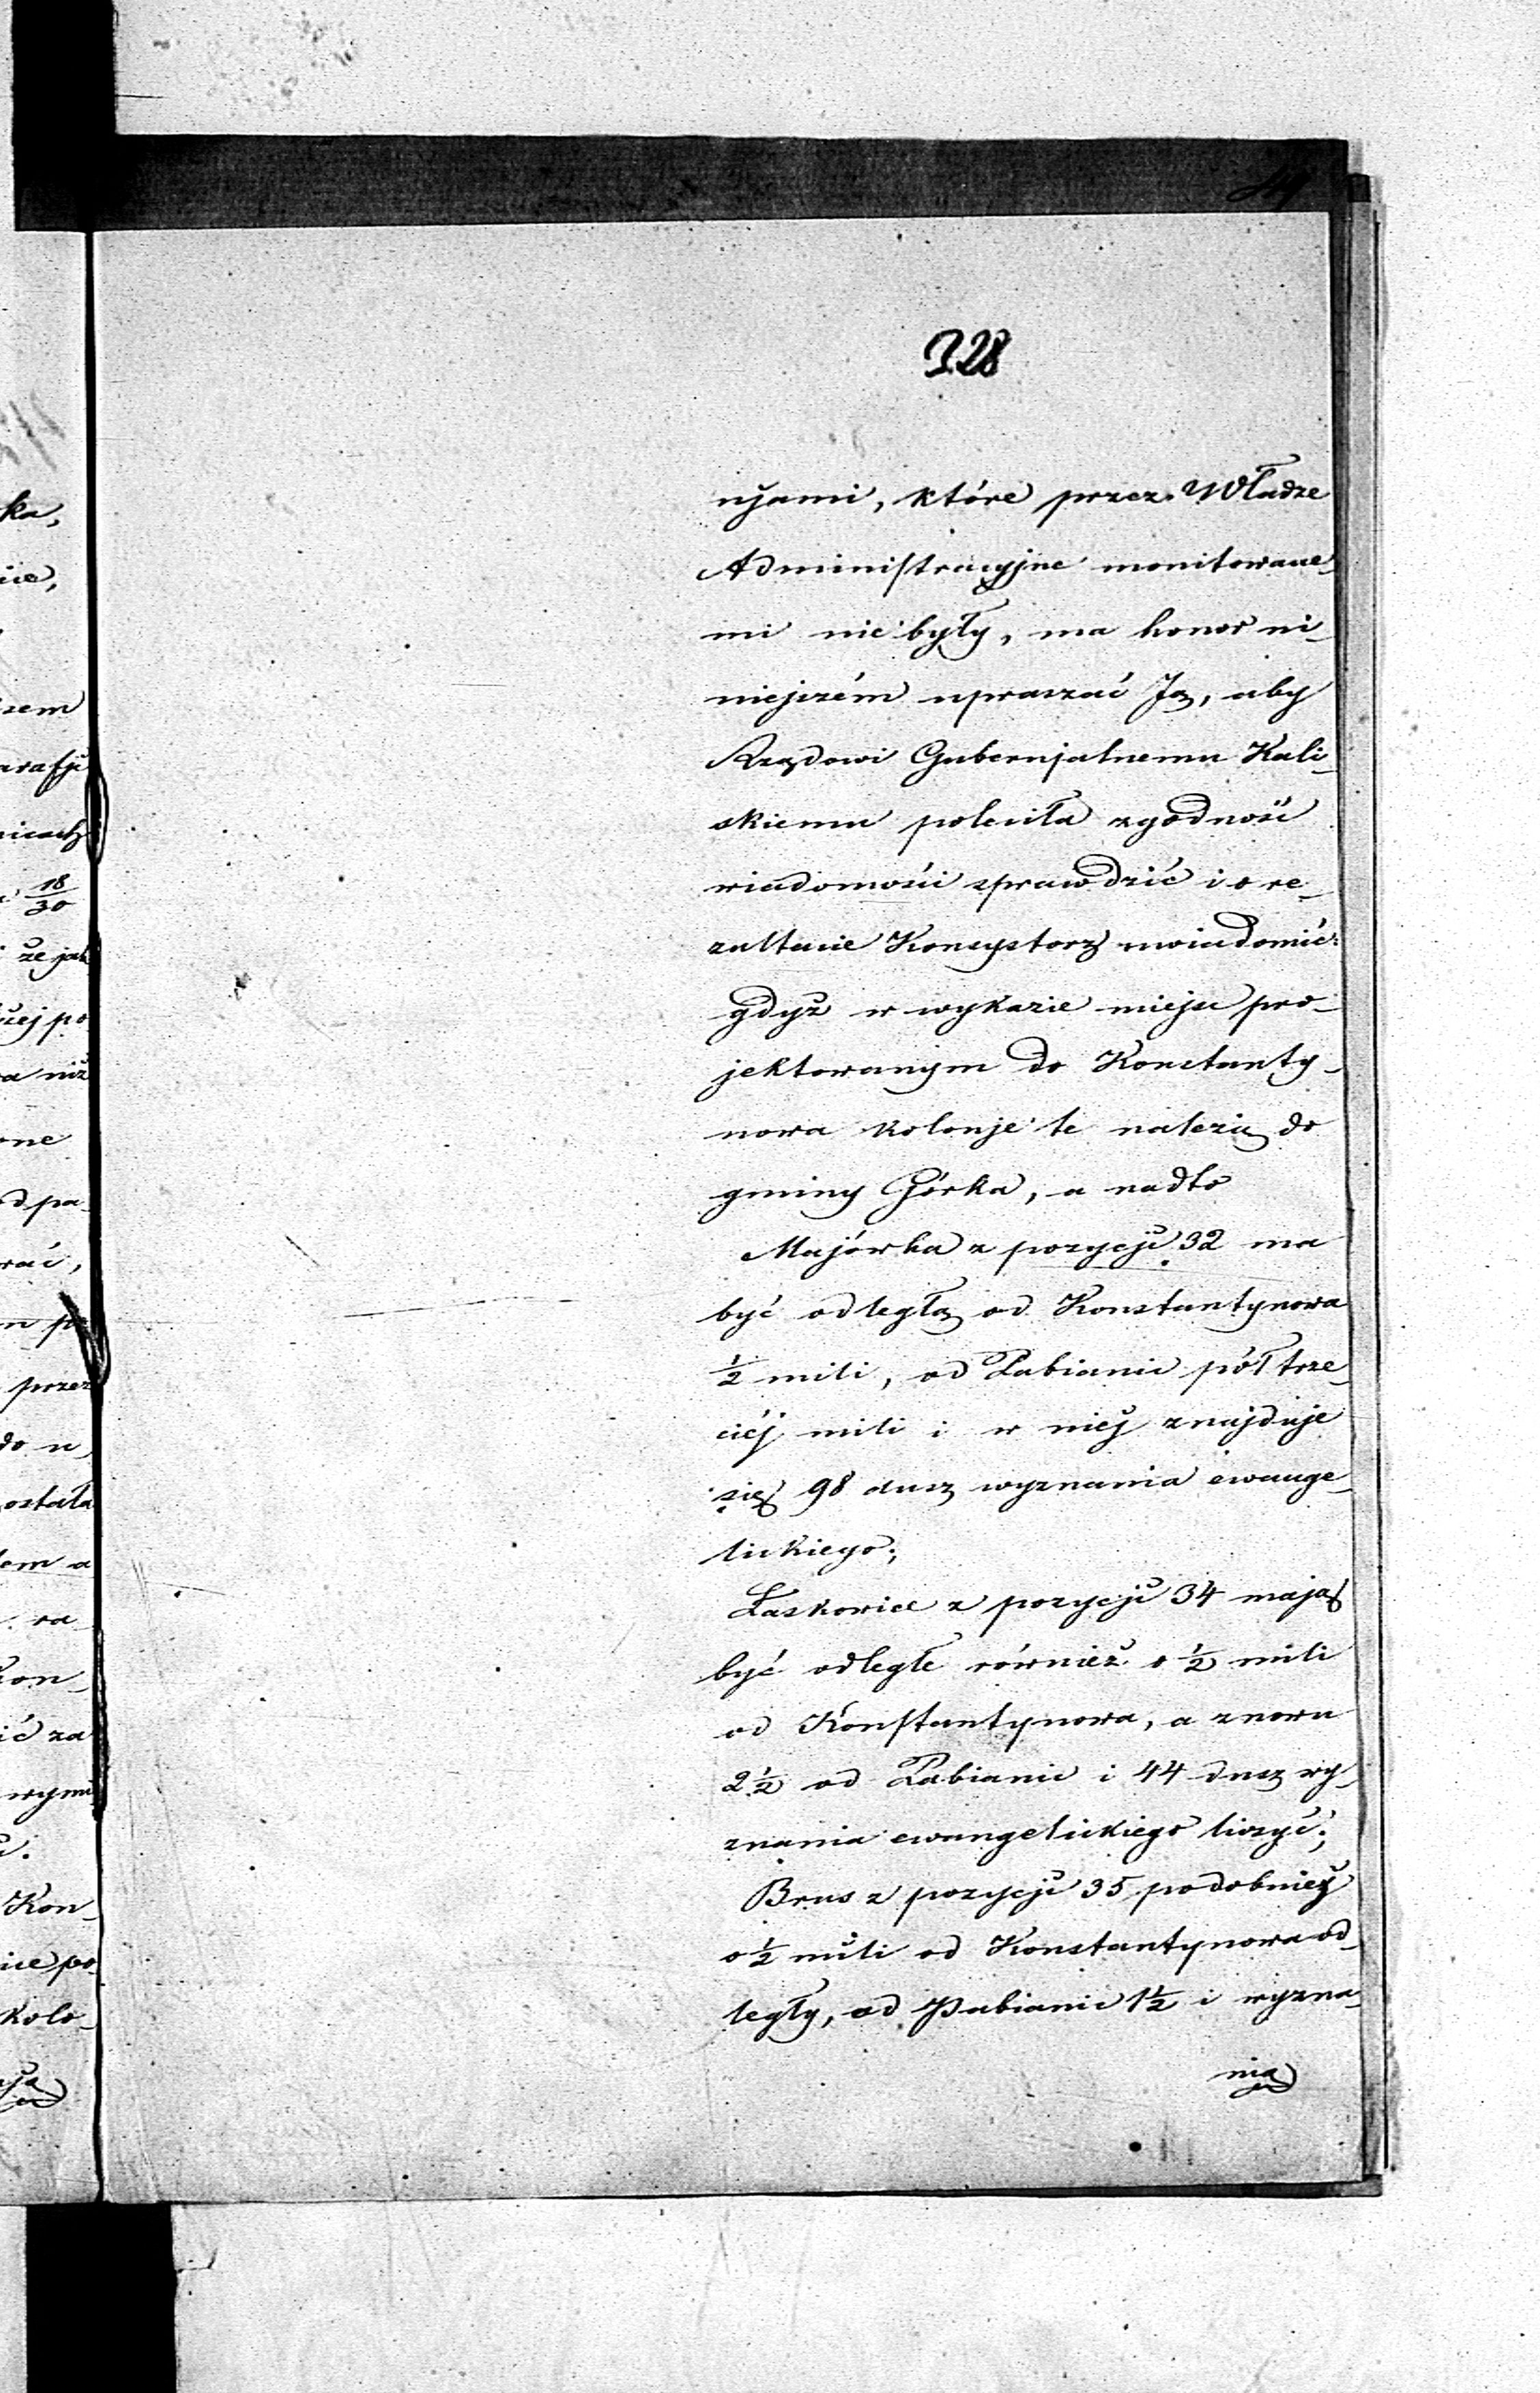 328
njami, które przez Władze
Administracyjne monitowane-
mi nie były, ma honor ni-
niejszém upraszać Ją, aby
Rządowi Gubernjalnemu Kali-
skiemu poleciła zgodność
wiadomości sprawdzić i o re-
zultacie Konsystorz uwiadomić:
gdyż w wykazie miejsc pro-
jektowanym do Konstanty-
nowa kolonje te należą do
gminy Górka, a nadto
Majówka z pozycji 32 ma
być odległą od Konstantynowa
½ mili, od Pabianic pół trze-
ciéj mili i w niej znajduje
się 98 dusz wyznania ewange-
lickiego;
Łaskowice z pozycji 34 mają
być odległe również o ½ mili
od Konstantynowa, a znowu
2½ od Pabianic i 44 dusz wy-
znania ewangelickiego liczyć;
Brus z pozycji 35 podobnież
o ½ mili od Konstantynowa od-
legły, od Pabianic 1½ i wyzna-
nia
ka,
nie,
arafji
nicach
18/30
że jak
żej po
a niż
one
d pa-
wać,
przez
do u-
ostała
lem a
ra-
Kon-
ić za
wymi
Kon-
ice po-
kolo-
nja